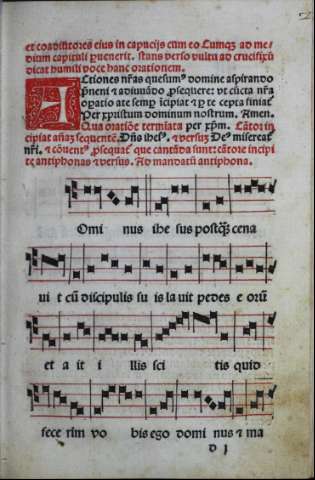 et coadiutores eius in capucijs cum eo Cumqȝ ad me
dium capituli ꝑuenerit. stans verso vultu ad crucifixū
dicat humili voce hanc orationem.
ACtiones nr̄as quesumꝰ domine aspirando
ꝑueni et adiuuādo ꝓsequere: vt cūcta nr̄a
oꝑatio a te semꝑ īcipiat et ꝑ te cepta finiat᷑
Per xp̄istum dominum nostrum. Amen.
Qua oratiōe terminata per xp̄m. Cātor in
cipiat añaȝ sequentē. Dñs ihesꝰ. et versuȝ Deꝰ misereat᷑
nr̄i. et cōuentꝰ ꝓsequat᷑ que cantāda sunt: cātore incipi
te antiphonas et versus. Ad mandatū antiphona.
Omi nus ihe sus postqȝ cena
ui t cū discipulis su is la uit pedes e orū
et a it i llis sci tis quid
fece rim vo bis ego domi nus ⁊ ma
d j